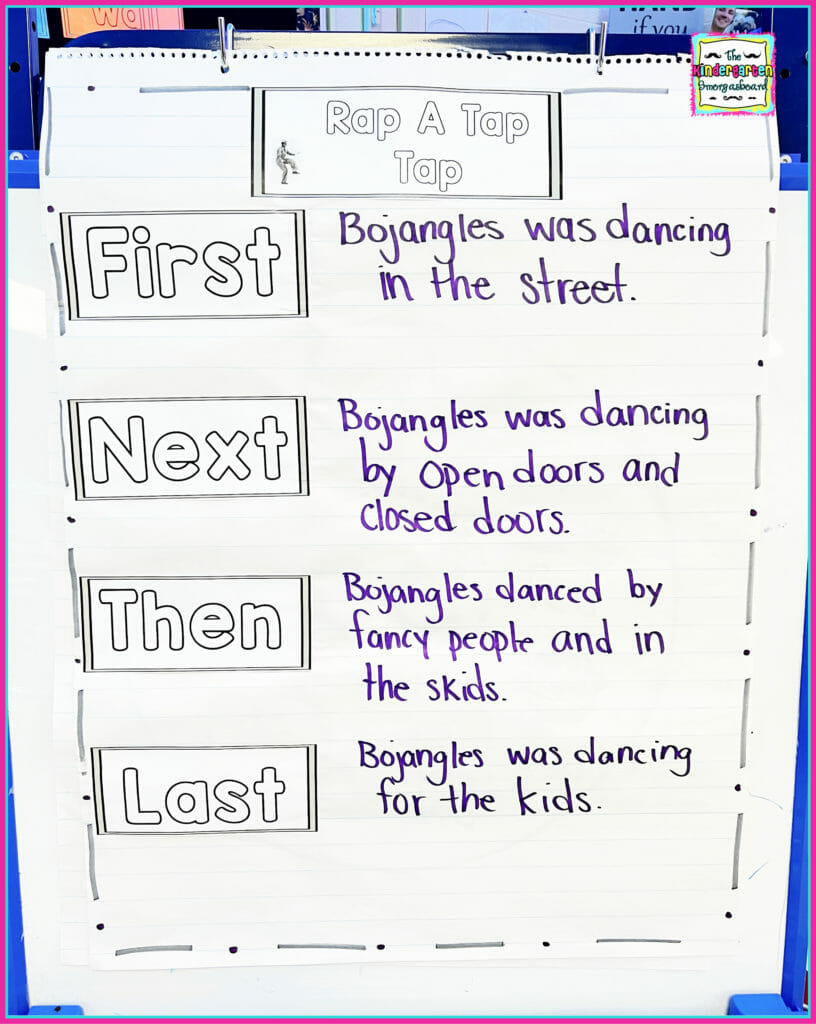 Wall
HAND
if you
The
Kindergarten
Smorgasboard
Rap A Tap
Tap
First
Bojangles was dancing
in the street.
Next
Bojangles was dancing
by open doors and
closed doors.
Then
Bojangles danced by
fancy people and in
the skids.
Last
Bojangles was dancing
for the kids.